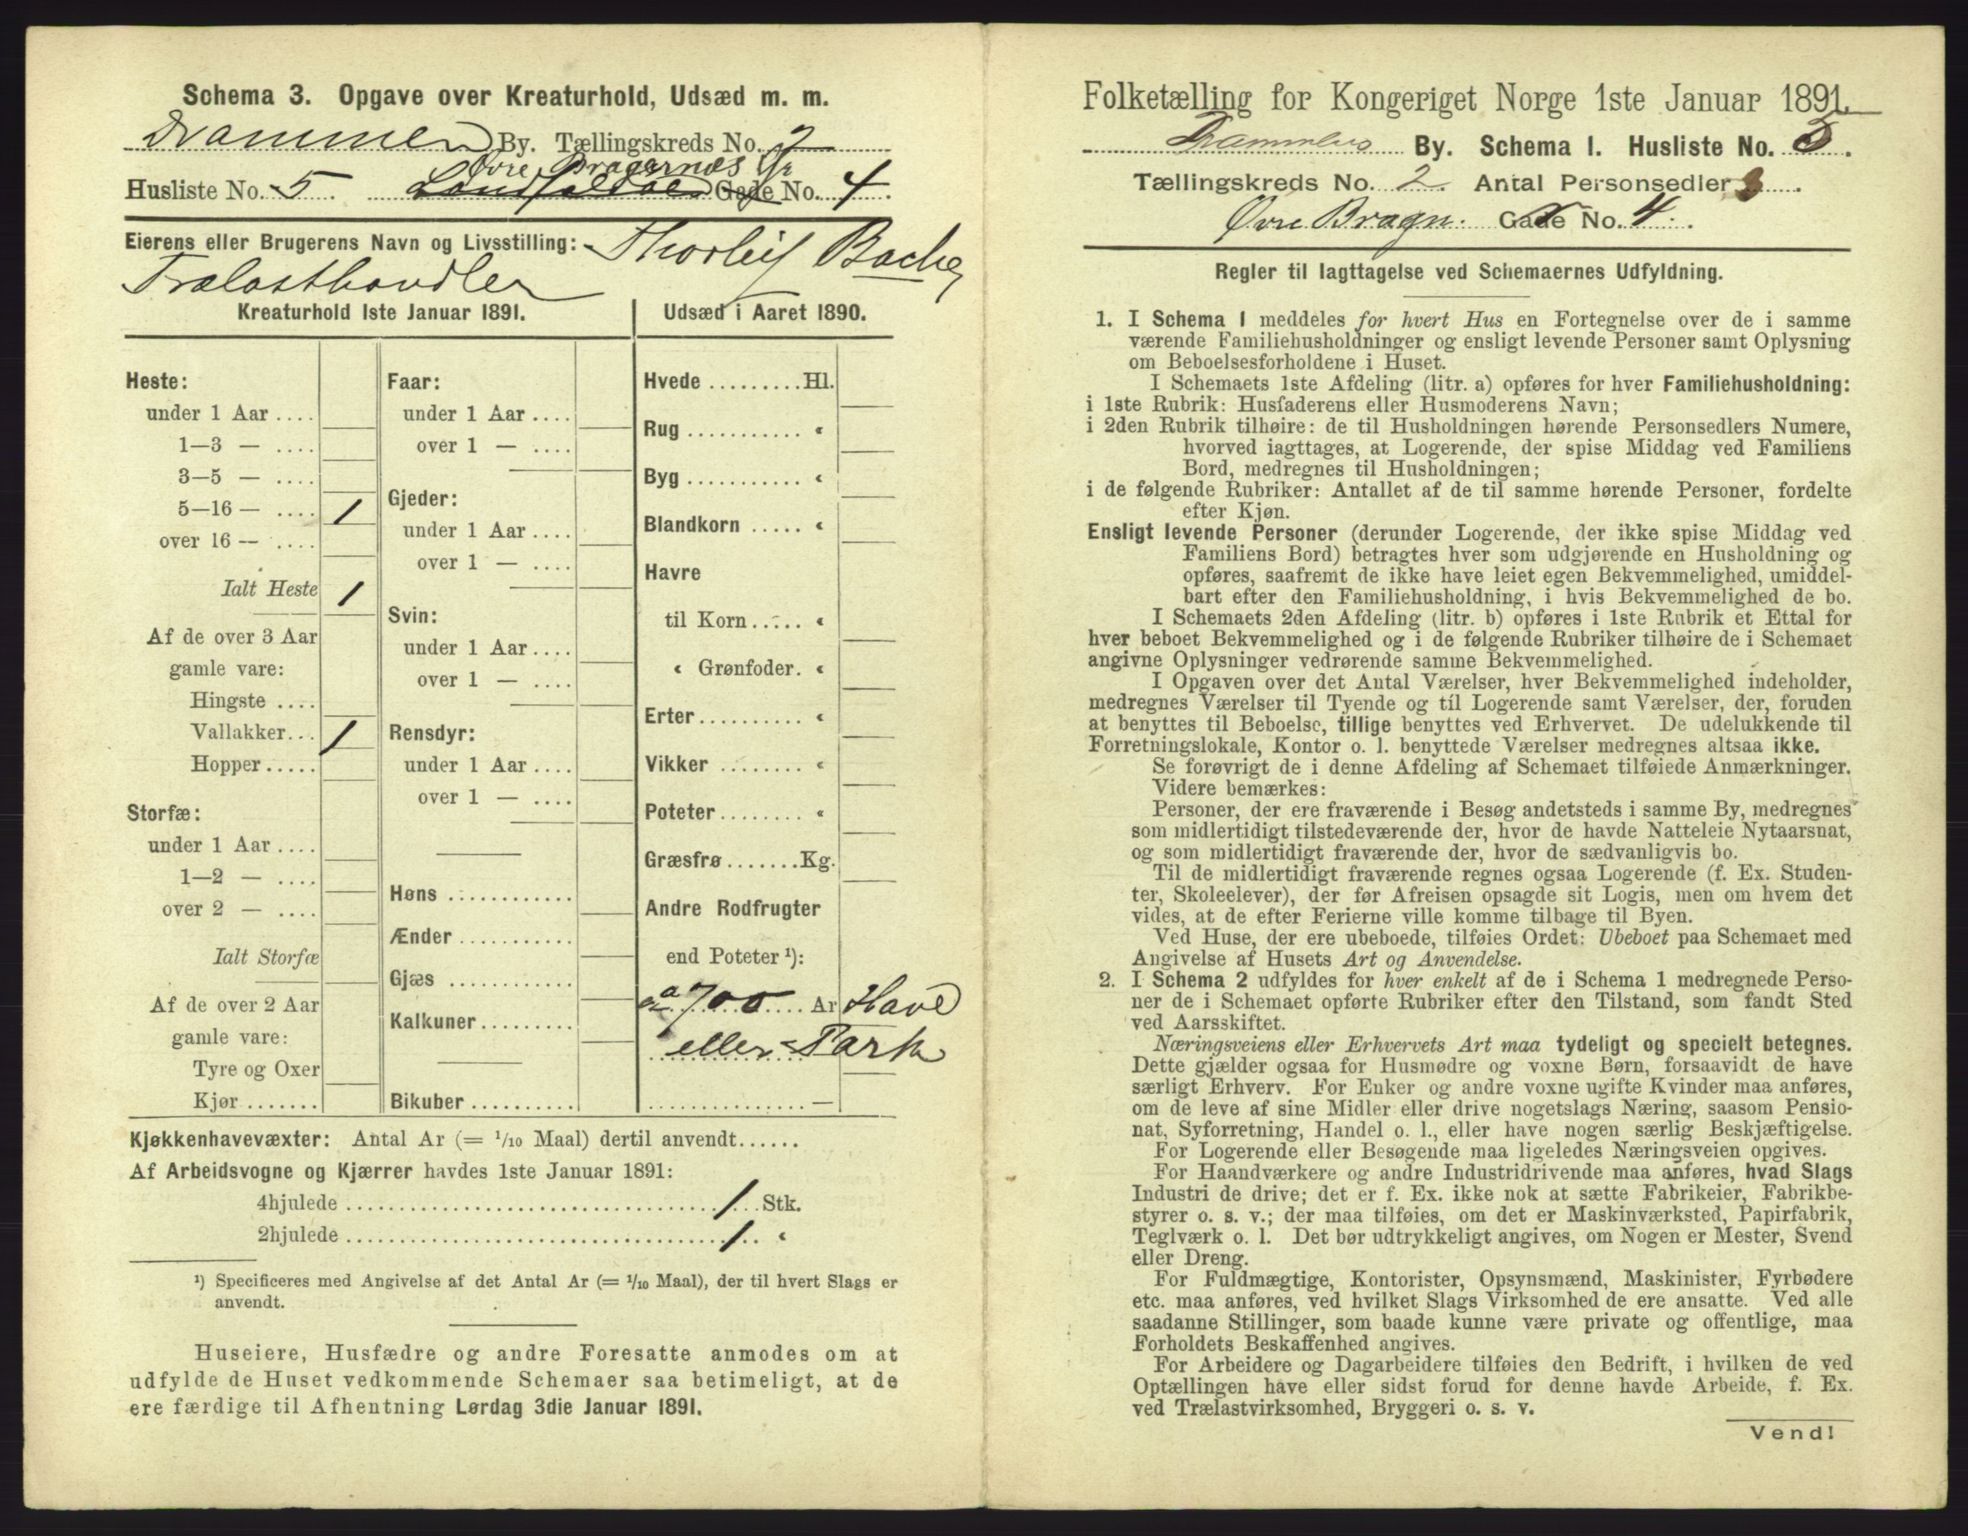 Schema 3. Opgave over Kreaturhold, Udsæd m. m.
Drammen By. Tællingskreds No. 2
Øvre Bragernæs Gr
Husliste No. 5. Landfaldøen Gade No. 4.
Eierens eller Brugerens Navn og Livsstilling: Thorleif Bache,
Trælasthandler
Kreaturhold 1ste Januar 1891.
Heste:
under 1 Aar ....
1—3 — ....
3—5 — ....
5—16 — .... 1
over 16 — ....
Ialt Heste 1
Af de over 3 Aar
gamle vare:
Hingste ....
Vallakker... 1
Hopper.....
Storfæ:
under 1 Aar ....
1—2 — ....
over 2 — ....
Ialt Storfæ
Af de over 2 Aar
gamle vare:
Tyre og Oxer
Kjør.......
Faar:
under 1 Aar ....
over 1 — ....
Gjeder:
under 1 Aar ....
over 1 — ....
Svin:
under 1 Aar ....
over 1 — ....
Rensdyr:
under 1 Aar ....
over 1 — ....
Høns ...........
Ænder...........
Gjæs ...........
Kalkuner.........
Bikuber..........
Udsæd i Aaret 1890.
Hvede .........Hl.
Rug ........... «
Byg ........... «
Blandkorn ..... «
Havre
til Korn..... «
« Grønfoder. «
Erter.......... «
Vikker ........ «
Poteter........ «
Græsfrø.......Kg.
Andre Rodfrugter
end Poteter ¹):
ca 700 Ar Have
eller Park
............... —
Kjøkkenhavevæxter: Antal Ar (= 1/10 Maal) dertil anvendt......
Af Arbeidsvogne og Kjærrer havdes 1ste Januar 1891:
4hjulede .................................... 1 Stk.
2hjulede .................................... 1 «
¹) Specificeres med Angivelse af det Antal Ar (= 1/10 Maal), der til hvert Slags er
anvendt.
Huseiere, Husfædre og andre Foresatte anmodes om at
udfylde de Huset vedkommende Schemaer saa betimeligt, at de
ere færdige til Afhentning Lørdag 3die Januar 1891.
Folketælling for Kongeriget Norge 1ste Januar 1891.
Drammens By. Schema 1. Husliste No. 5.
Tællingskreds No. 2. Antal Personsedler 3.
Øvre Bragn. Gade No. 4.
Regler til Iagttagelse ved Schemaernes Udfyldning.
1. I Schema 1 meddeles for hvert Hus en Fortegnelse over de i samme
værende Familiehusholdninger og ensligt levende Personer samt Oplysning
om Beboelsesforholdene i Huset.
I Schemaets 1ste Afdeling (litr. a) opføres for hver Familiehusholdning:
i 1ste Rubrik: Husfaderens eller Husmoderens Navn;
i 2den Rubrik tilhøire: de til Husholdningen hørende Personsedlers Numere,
hvorved iagttages, at Logerende, der spise Middag ved Familiens
Bord, medregnes til Husholdningen;
i de følgende Rubriker: Antallet af de til samme hørende Personer, fordelte
efter Kjøn.
Ensligt levende Personer (derunder Logerende, der ikke spise Middag ved
Familiens Bord) betragtes hver som udgjørende en Husholdning og
opføres, saafremt de ikke have leiet egen Bekvemmelighed, umiddel-
bart efter den Familiehusholdning, i hvis Bekvemmelighed de bo.
I Schemaets 2den Afdeling (litr. b) opføres i 1ste Rubrik et Ettal for
hver beboet Bekvemmelighed og i de følgende Rubriker tilhøire de i Schemaet
angivne Oplysninger vedrørende samme Bekvemmelighed.
I Opgaven over det Antal Værelser, hver Bekvemmelighed indeholder,
medregnes Værelser til Tyende og til Logerende samt Værelser, der, foruden
at benyttes til Beboelse, tillige benyttes ved Erhvervet. De udelukkende til
Forretningslokale, Kontor o. l. benyttede Værelser medregnes altsaa ikke.
Se forøvrigt de i denne Afdeling af Schemaet tilføiede Anmærkninger.
Videre bemærkes:
Personer, der ere fraværende i Besøg andetsteds i samme By, medregnes
som midlertidigt tilstedeværende der, hvor de havde Natteleie Nytaarsnat,
og som midlertidigt fraværende der, hvor de sædvanligvis bo.
Til de midlertidigt fraværende regnes ogsaa Logerende (f. Ex. Studen-
ter, Skoleelever), der før Afreisen opsagde sit Logis, men om hvem det
vides, at de efter Ferierne ville komme tilbage til Byen.
Ved Huse, der ere ubeboede, tilføies Ordet: Ubeboet paa Schemaet med
Angivelse af Husets Art og Anvendelse.
2. I Schema 2 udfyldes for hver enkelt af de i Schema 1 medregnede Perso-
ner de i Schemaet opførte Rubriker efter den Tilstand, som fandt Sted
ved Aarsskiftet.
Næringsveiens eller Erhvervets Art maa tydeligt og specielt betegnes.
Dette gjælder ogsaa for Husmødre og voxne Børn, forsaavidt de have
særligt Erhverv. For Enker og andre voxne ugifte Kvinder maa anføres,
om de leve af sine Midler eller drive nogetslags Næring, saasom Pensio-
nat, Syforretning, Handel o. l., eller have nogen særlig Beskjæftigelse.
For Logerende eller Besøgende maa ligeledes Næringsveien opgives.
For Haandværkere og andre Industridrivende maa anføres, hvad Slags
Industri de drive; det er f. Ex. ikke nok at sætte Fabrikeier, Fabrikbe-
styrer o. s. v.; der maa tilføies, om det er Maskinværksted, Papirfabrik,
Teglværk o. l. Det bør udtrykkeligt angives, om Nogen er Mester, Svend
eller Dreng.
For Fuldmægtige, Kontorister, Opsynsmænd, Maskinister, Fyrbødere
etc. maa anføres, ved hvilket Slags Virksomhed de ere ansatte. Ved alle
saadanne Stillinger, som baade kunne være private og offentlige, maa
Forholdets Beskaffenhed angives.
For Arbeidere og Dagarbeidere tilføies den Bedrift, i hvilken de ved
Optællingen have eller sidst forud for denne havde Arbeide, f. Ex.
ved Trælastvirksomhed, Bryggeri o. s. v.
Vend!